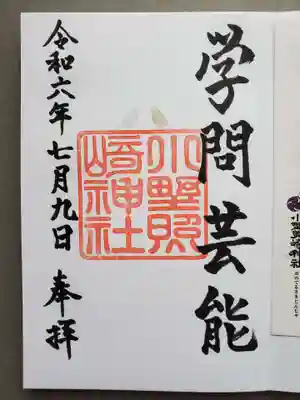 学問芸能
小野照
崎神社
令和六年七月九日 奉拝
小野照崎神社